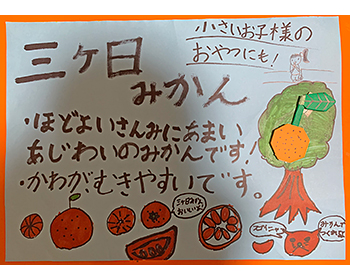 三ヶ日
みかん
小さいお子様の
おやつにも!
・ほどよいさんみにあまい
あじわいのみかんです!
・かわがむきやすいです。
三ヶ日みかん
おいしいよ
みかんで